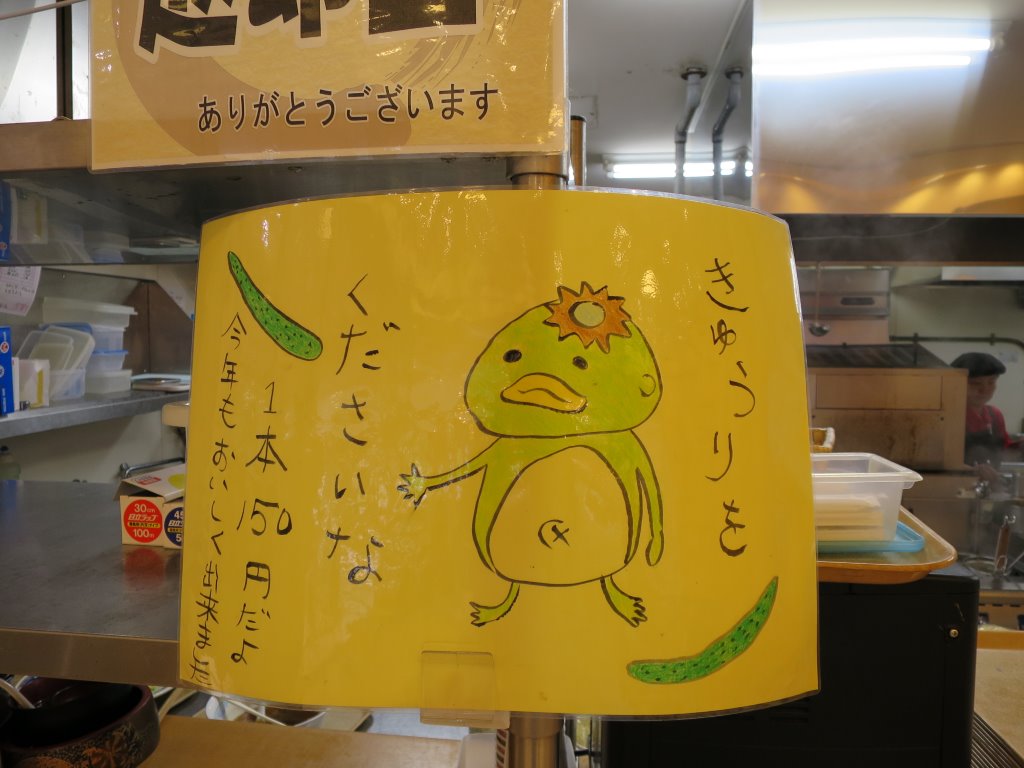 ありがとうございます
きゅうりを
くださいなよ
1本150円だよ
今年もおいしく出来ました
30cm
100m